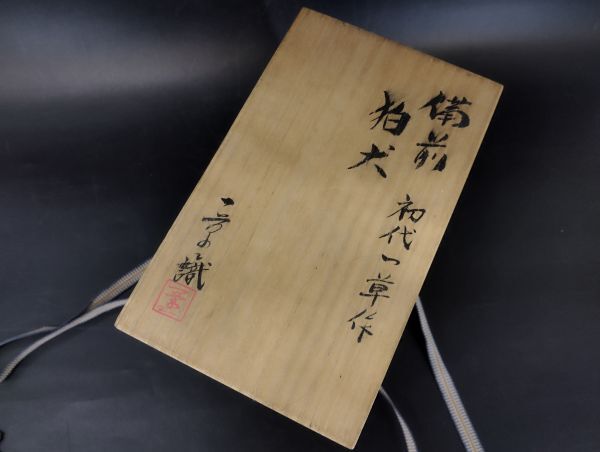 備前
狛犬
初代一草作
一草識